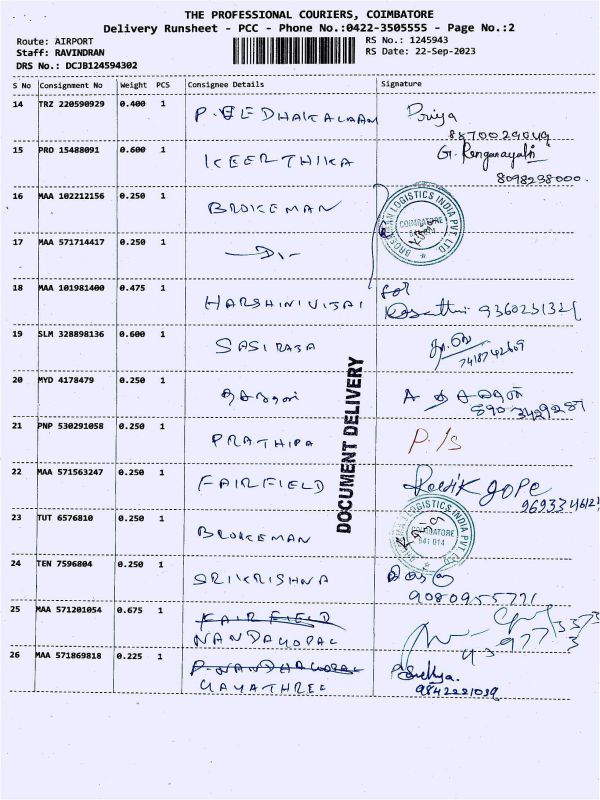 THE PROFESSIONAL COURIERS, COIMBATORE
Delivery Runsheet - PCC - Phone No.:0422-3505555 - Page No.:2
Route: AIRPORT
Staff: RAVINDRAN
DRS No.: DCJB124594302
RS No.: 1245943
RS Date: 22-Sep-2023
S No Consignment No Weight PCS Consignee Details Signature
14 TRZ 220590929 0.400 1 Priya
15 PRO 15488091 0.600 1 KEERTHIKA
8098238000.
16 MAA 102212156 0.250 1 BROKEMAN
BROEKMAN LOGISTICS INDIA PVT. LTD
COIMBATORE
17 MAA 571714417 0.250 1 -Do-
18 MAA 101981400 0.475 1 HARSHINI VIJAI for
9360231321
19 SLM 328898136 0.600 1 SASIRAJA
7418742609
20 MYD 4178479 0.250 1
21 PNP 530291058 0.250 1 PRATHIPA P. /s
DOCUMENT DELIVERY
22 MAA 571563247 0.250 1 FAIRFIELD
23 TUT 6576810 0.250 1 BROKEMAN
LOGISTICS INDIA PVT. LTD
COIMBATORE
641 014
24 TEN 7596804 0.250 1 SRIKRISHNA
9080955771
25 MAA 571201054 0.675 1 FAIRFIELD
NANDAGOPAL
26 MAA 571869818 0.225 1 P. NANDHAGOPAL
GAYATHREE
9842221039